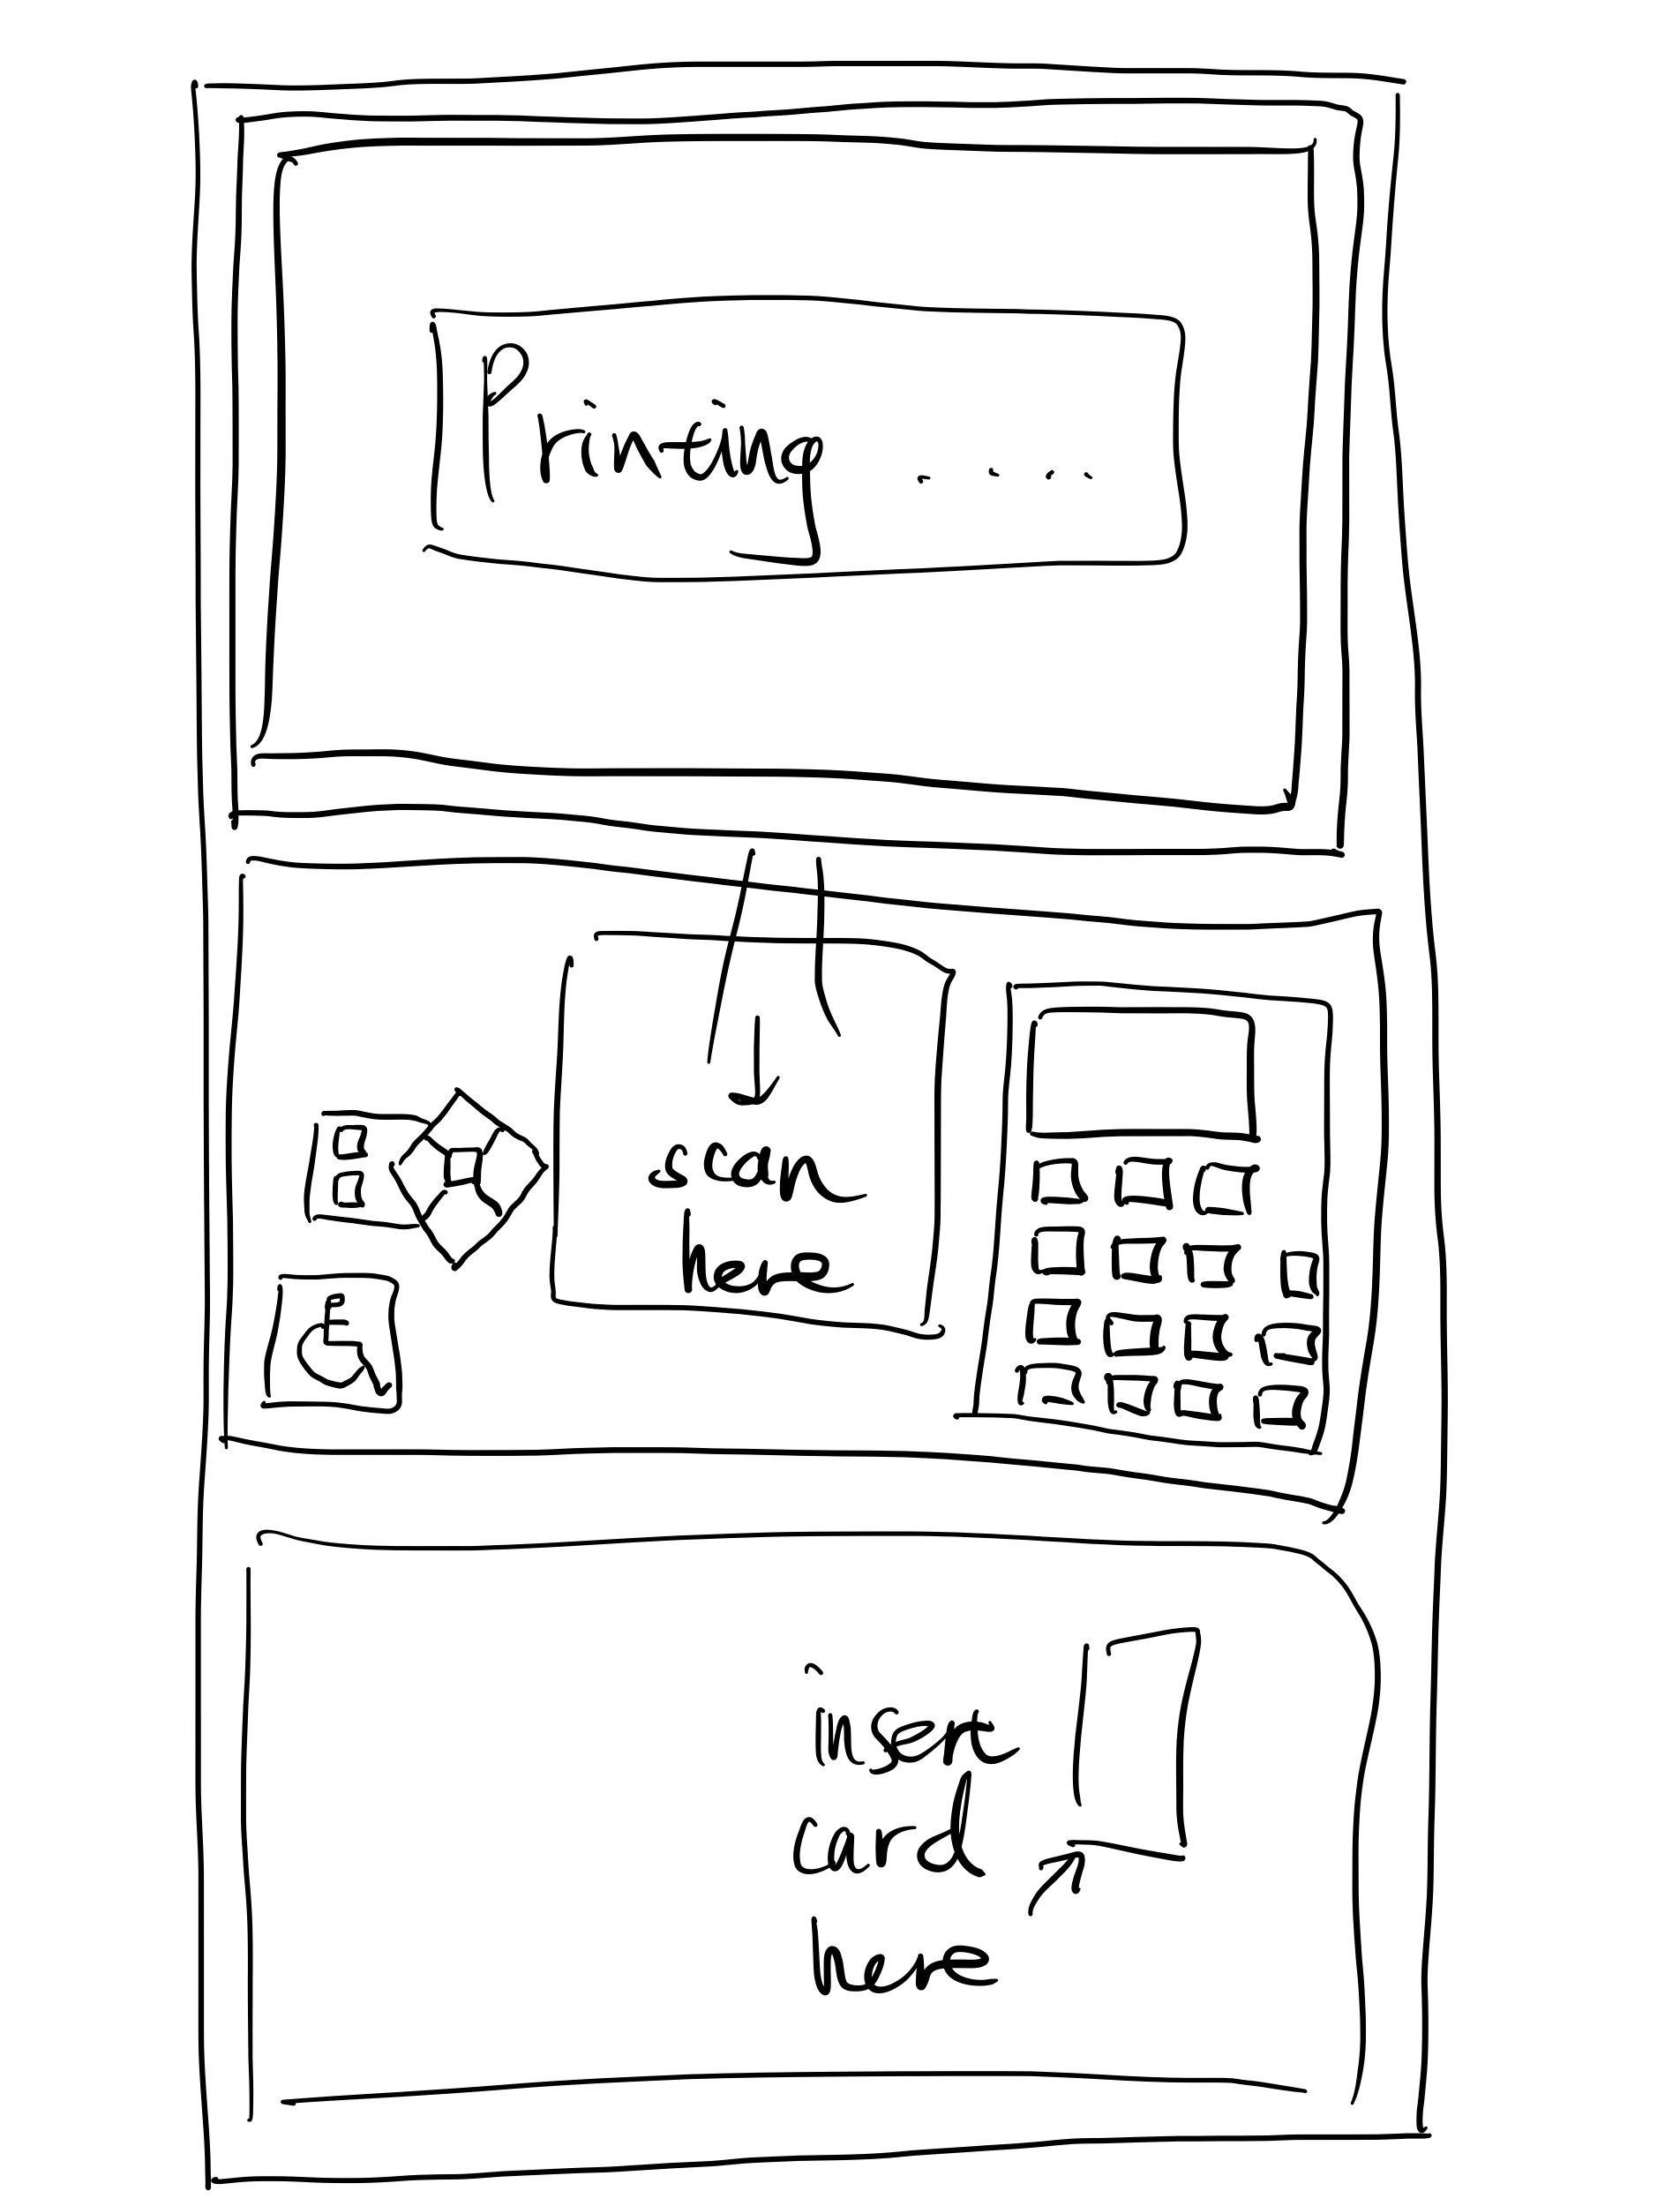 Printing ....
scan
here
insert
card
here